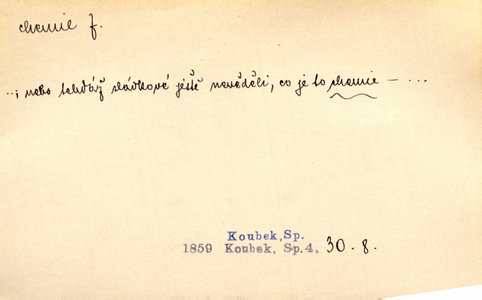 chemie f.
...; nebo tehdáž sládkové ještě nevěděli, co je to chemie — ...
Koubek, Sp.
1859 Koubek, Sp.4, 30. 8.